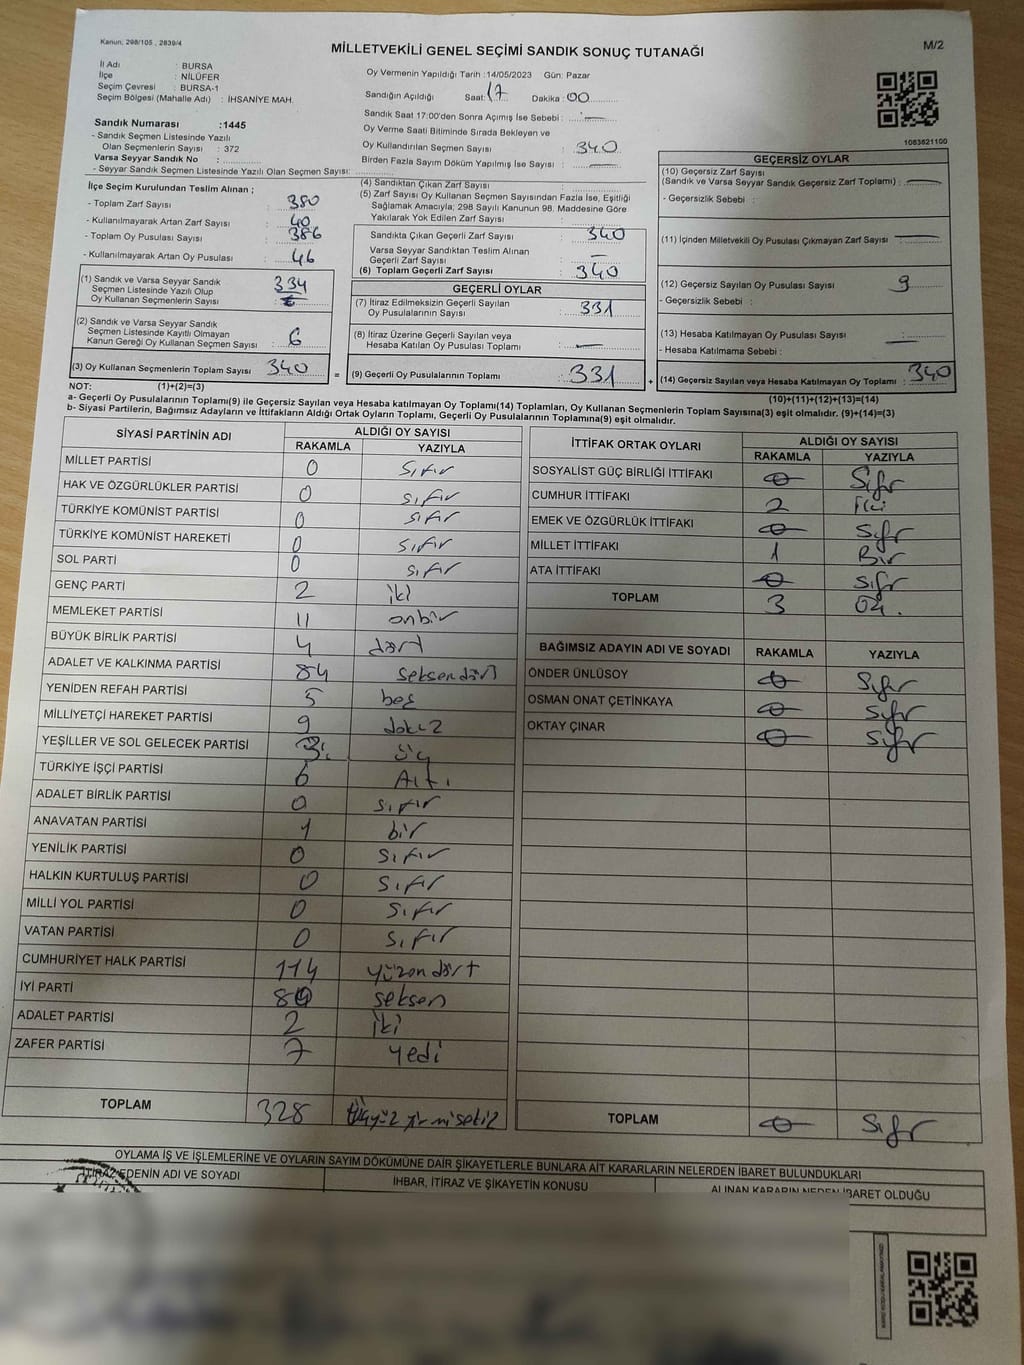 Kanun; 298/105 , 2839/4
MİLLETVEKİLİ GENEL SEÇİMİ SANDIK SONUÇ TUTANAĞI
M/2
İl Adı : BURSA
İlçe : NİLÜFER
Seçim Çevresi : BURSA-1
Seçim Bölgesi (Mahalle Adı) : İHSANİYE MAH.
Oy Vermenin Yapıldığı Tarih :14/05/2023 Gün: Pazar
Sandığın Açıldığı Saat: 17 Dakika : 00
Sandık Saat 17:00'den Sonra Açımış İse Sebebi : —
Oy Verme Saati Bitiminde Sırada Bekleyen ve
Oy Kullandırılan Seçmen Sayısı : 340
Birden Fazla Sayım Döküm Yapılmış İse Sayısı : —
1083621100
Sandık Numarası :1445
- Sandık Seçmen Listesinde Yazılı
Olan Seçmenlerin Sayısı : 372
Varsa Seyyar Sandık No :
- Seyyar Sandık Seçmen Listesinde Yazılı Olan Seçmen Sayısı:
İlçe Seçim Kurulundan Teslim Alınan ;
- Toplam Zarf Sayısı : 380
- Kullanılmayarak Artan Zarf Sayısı : 40
- Toplam Oy Pusulası Sayısı : 386
- Kullanılmayarak Artan Oy Pusulası : 46
(1) Sandık ve Varsa Seyyar Sandık
Seçmen Listesinde Yazılı Olup
Oy Kullanan Seçmenlerin Sayısı : 334
(2) Sandık ve Varsa Seyyar Sandık
Seçmen Listesinde Kayıtlı Olmayan
Kanun Gereği Oy Kullanan Seçmen Sayısı : 6
(3) Oy Kullanan Seçmenlerin Toplam Sayısı : 340
(4) Sandıktan Çıkan Zarf Sayısı :
(5) Zarf Sayısı Oy Kullanan Seçmen Sayısından Fazla İse, Eşitliği
Sağlamak Amacıyla; 298 Sayılı Kanunun 98. Maddesine Göre
Yakılarak Yok Edilen Zarf Sayısı :
Sandıkta Çıkan Geçerli Zarf Sayısı : 340
Varsa Seyyar Sandıktan Teslim Alınan
Geçerli Zarf Sayısı : —
(6) Toplam Geçerli Zarf Sayısı : 340
GEÇERLİ OYLAR
(7) İtiraz Edilmeksizin Geçerli Sayılan
Oy Pusulalarının Sayısı : 331
(8) İtiraz Üzerine Geçerli Sayılan veya
Hesaba Katılan Oy Pusulası Toplamı : —
= (9) Geçerli Oy Pusulalarının Toplamı : 331 +
GEÇERSİZ OYLAR
(10) Geçersiz Zarf Sayısı
(Sandık ve Varsa Seyyar Sandık Geçersiz Zarf Toplamı) : —
- Geçersizlik Sebebi :
(11) İçinden Milletvekili Oy Pusulası Çıkmayan Zarf Sayısı : —
(12) Geçersiz Sayılan Oy Pusulası Sayısı : 9
- Geçersizlik Sebebi :
(13) Hesaba Katılmayan Oy Pusulası Sayısı : —
- Hesaba Katılmama Sebebi :
(14) Geçersiz Sayılan veya Hesaba Katılmayan Oy Toplamı : 340
NOT: (1)+(2)=(3)
(10)+(11)+(12)+(13)=(14)
a- Geçerli Oy Pusulalarının Toplamı(9) ile Geçersiz Sayılan veya Hesaba katılmayan Oy Toplamı(14) Toplamları, Oy Kullanan Seçmenlerin Toplam Sayısına(3) eşit olmalıdır. (9)+(14)=(3)
b- Siyasi Partilerin, Bağımsız Adayların ve İttifakların Aldığı Ortak Oyların Toplamı, Geçerli Oy Pusulalarının Toplamına(9) eşit olmalıdır.
SİYASİ PARTİNİN ADI ALDIĞI OY SAYISI
RAKAMLA YAZIYLA
MİLLET PARTİSİ 0 sıfır
HAK VE ÖZGÜRLÜKLER PARTİSİ 0 sıfır
TÜRKİYE KOMÜNİST PARTİSİ 0 sıfır
TÜRKİYE KOMÜNİST HAREKETİ 0 sıfır
SOL PARTİ 0 sıfır
GENÇ PARTİ 2 iki
MEMLEKET PARTİSİ 11 onbir
BÜYÜK BİRLİK PARTİSİ 4 dört
ADALET VE KALKINMA PARTİSİ 84 seksendört
YENİDEN REFAH PARTİSİ 5 beş
MİLLİYETÇİ HAREKET PARTİSİ 9 dokuz
YEŞİLLER VE SOL GELECEK PARTİSİ 3 üç
TÜRKİYE İŞÇİ PARTİSİ 6 Altı
ADALET BİRLİK PARTİSİ 0 sıfır
ANAVATAN PARTİSİ 1 bir
YENİLİK PARTİSİ 0 sıfır
HALKIN KURTULUŞ PARTİSİ 0 sıfır
MİLLİ YOL PARTİSİ 0 sıfır
VATAN PARTİSİ 0 sıfır
CUMHURİYET HALK PARTİSİ 114 yüzondört
İYİ PARTİ 80 seksen
ADALET PARTİSİ 2 iki
ZAFER PARTİSİ 7 yedi
TOPLAM 328 üçyüzyirmisekiz
İTTİFAK ORTAK OYLARI ALDIĞI OY SAYISI
RAKAMLA YAZIYLA
SOSYALİST GÜÇ BİRLİĞİ İTTİFAKI 0 Sıfır
CUMHUR İTTİFAKI 2 İki
EMEK VE ÖZGÜRLÜK İTTİFAKI 0 Sıfır
MİLLET İTTİFAKI 1 Bir
ATA İTTİFAKI 0 Sıfır
TOPLAM 3 Üç.
BAĞIMSIZ ADAYIN ADI VE SOYADI RAKAMLA YAZIYLA
ÖNDER ÜNLÜSOY 0 Sıfır
OSMAN ONAT ÇETİNKAYA 0 Sıfır
OKTAY ÇINAR 0 Sıfır
TOPLAM 0 Sıfır
OYLAMA İŞ VE İŞLEMLERİNE VE OYLARIN SAYIM DÖKÜMÜNE DAİR ŞİKAYETLERLE BUNLARA AİT KARARLARIN NELERDEN İBARET BULUNDUKLARI
İTİRAZ EDENİN ADI VE SOYADI İHBAR, İTİRAZ VE ŞİKAYETİN KONUSU ALINAN KARARIN NEDEN İBARET OLDUĞU